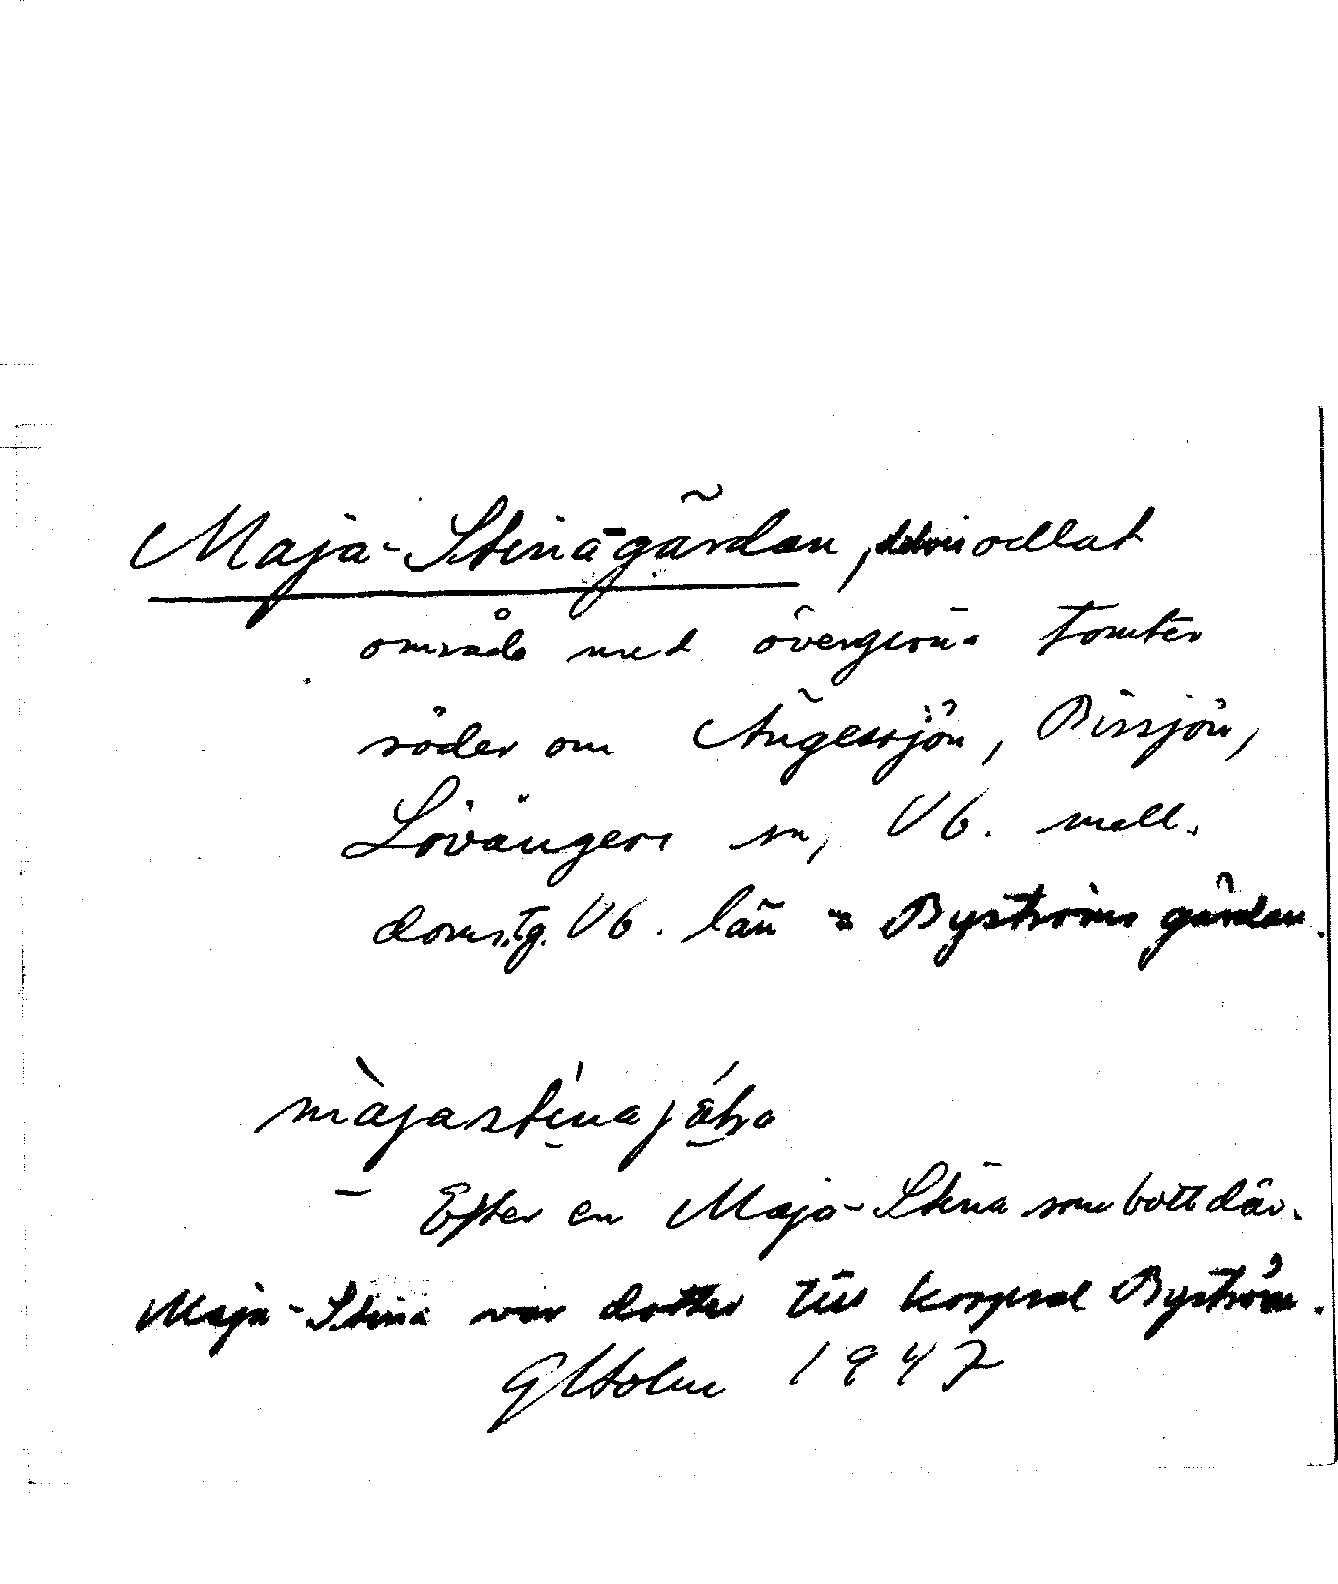 Maja-Stinagärdan, delvis odlat
område med övergivna tomter
söder om Ängessjön, Bissjön,
Lövångers sn, Vb. mell.
doms.tg. Vb. län = Byströms gärdan.
màjastinajǽḷra
- Efter en Maja-Stina som bott där.
Maja-Stina var dotter till korpral Byström.
G Holm 1947